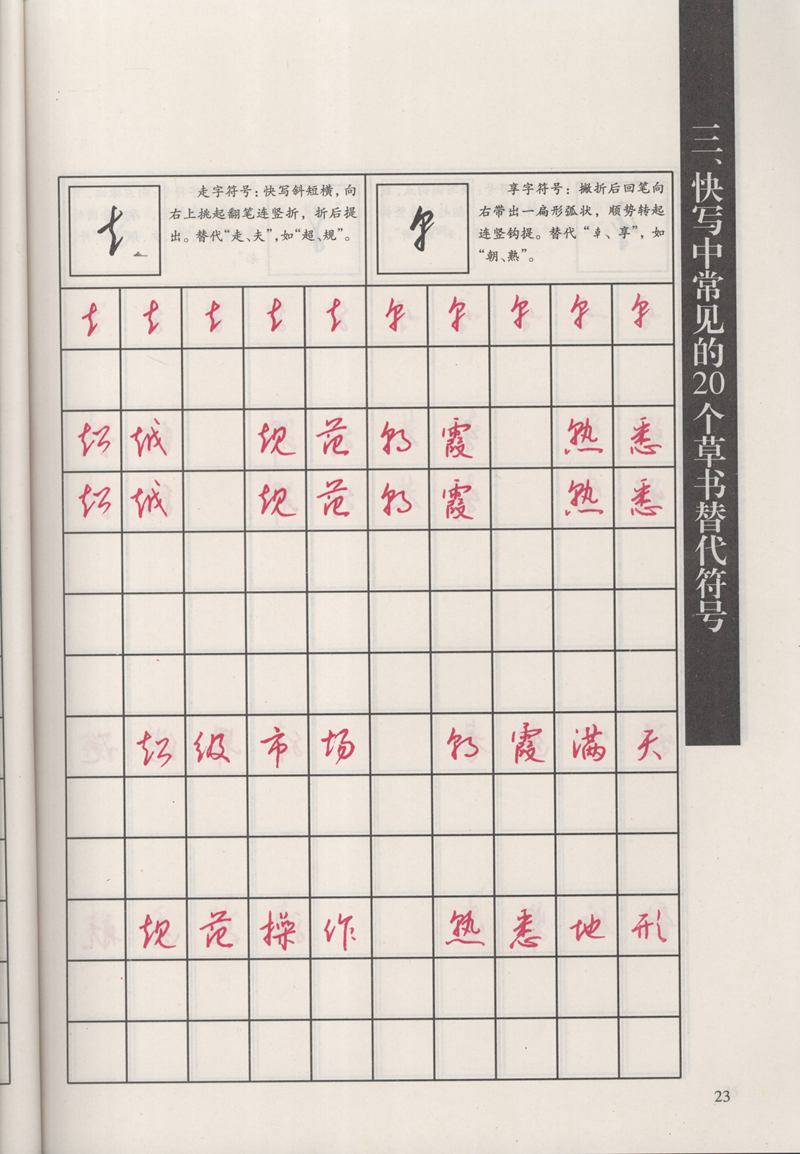 三、快写中常见的20个草书替代符号
走字符号：快写斜短横，向
右上挑起翻笔连竖折，折后提
出。替代“走、夫”，如“超、规”。
享字符号：撇折后回笔向
右带出一扁形弧状，顺势转起
连竖钩提。替代“𠦝、享”，如
“朝、熟”。
超越 规范朝霞 熟悉
超越 规范朝霞 熟悉
超级市场 朝霞满天
规范操作 熟悉地形
23